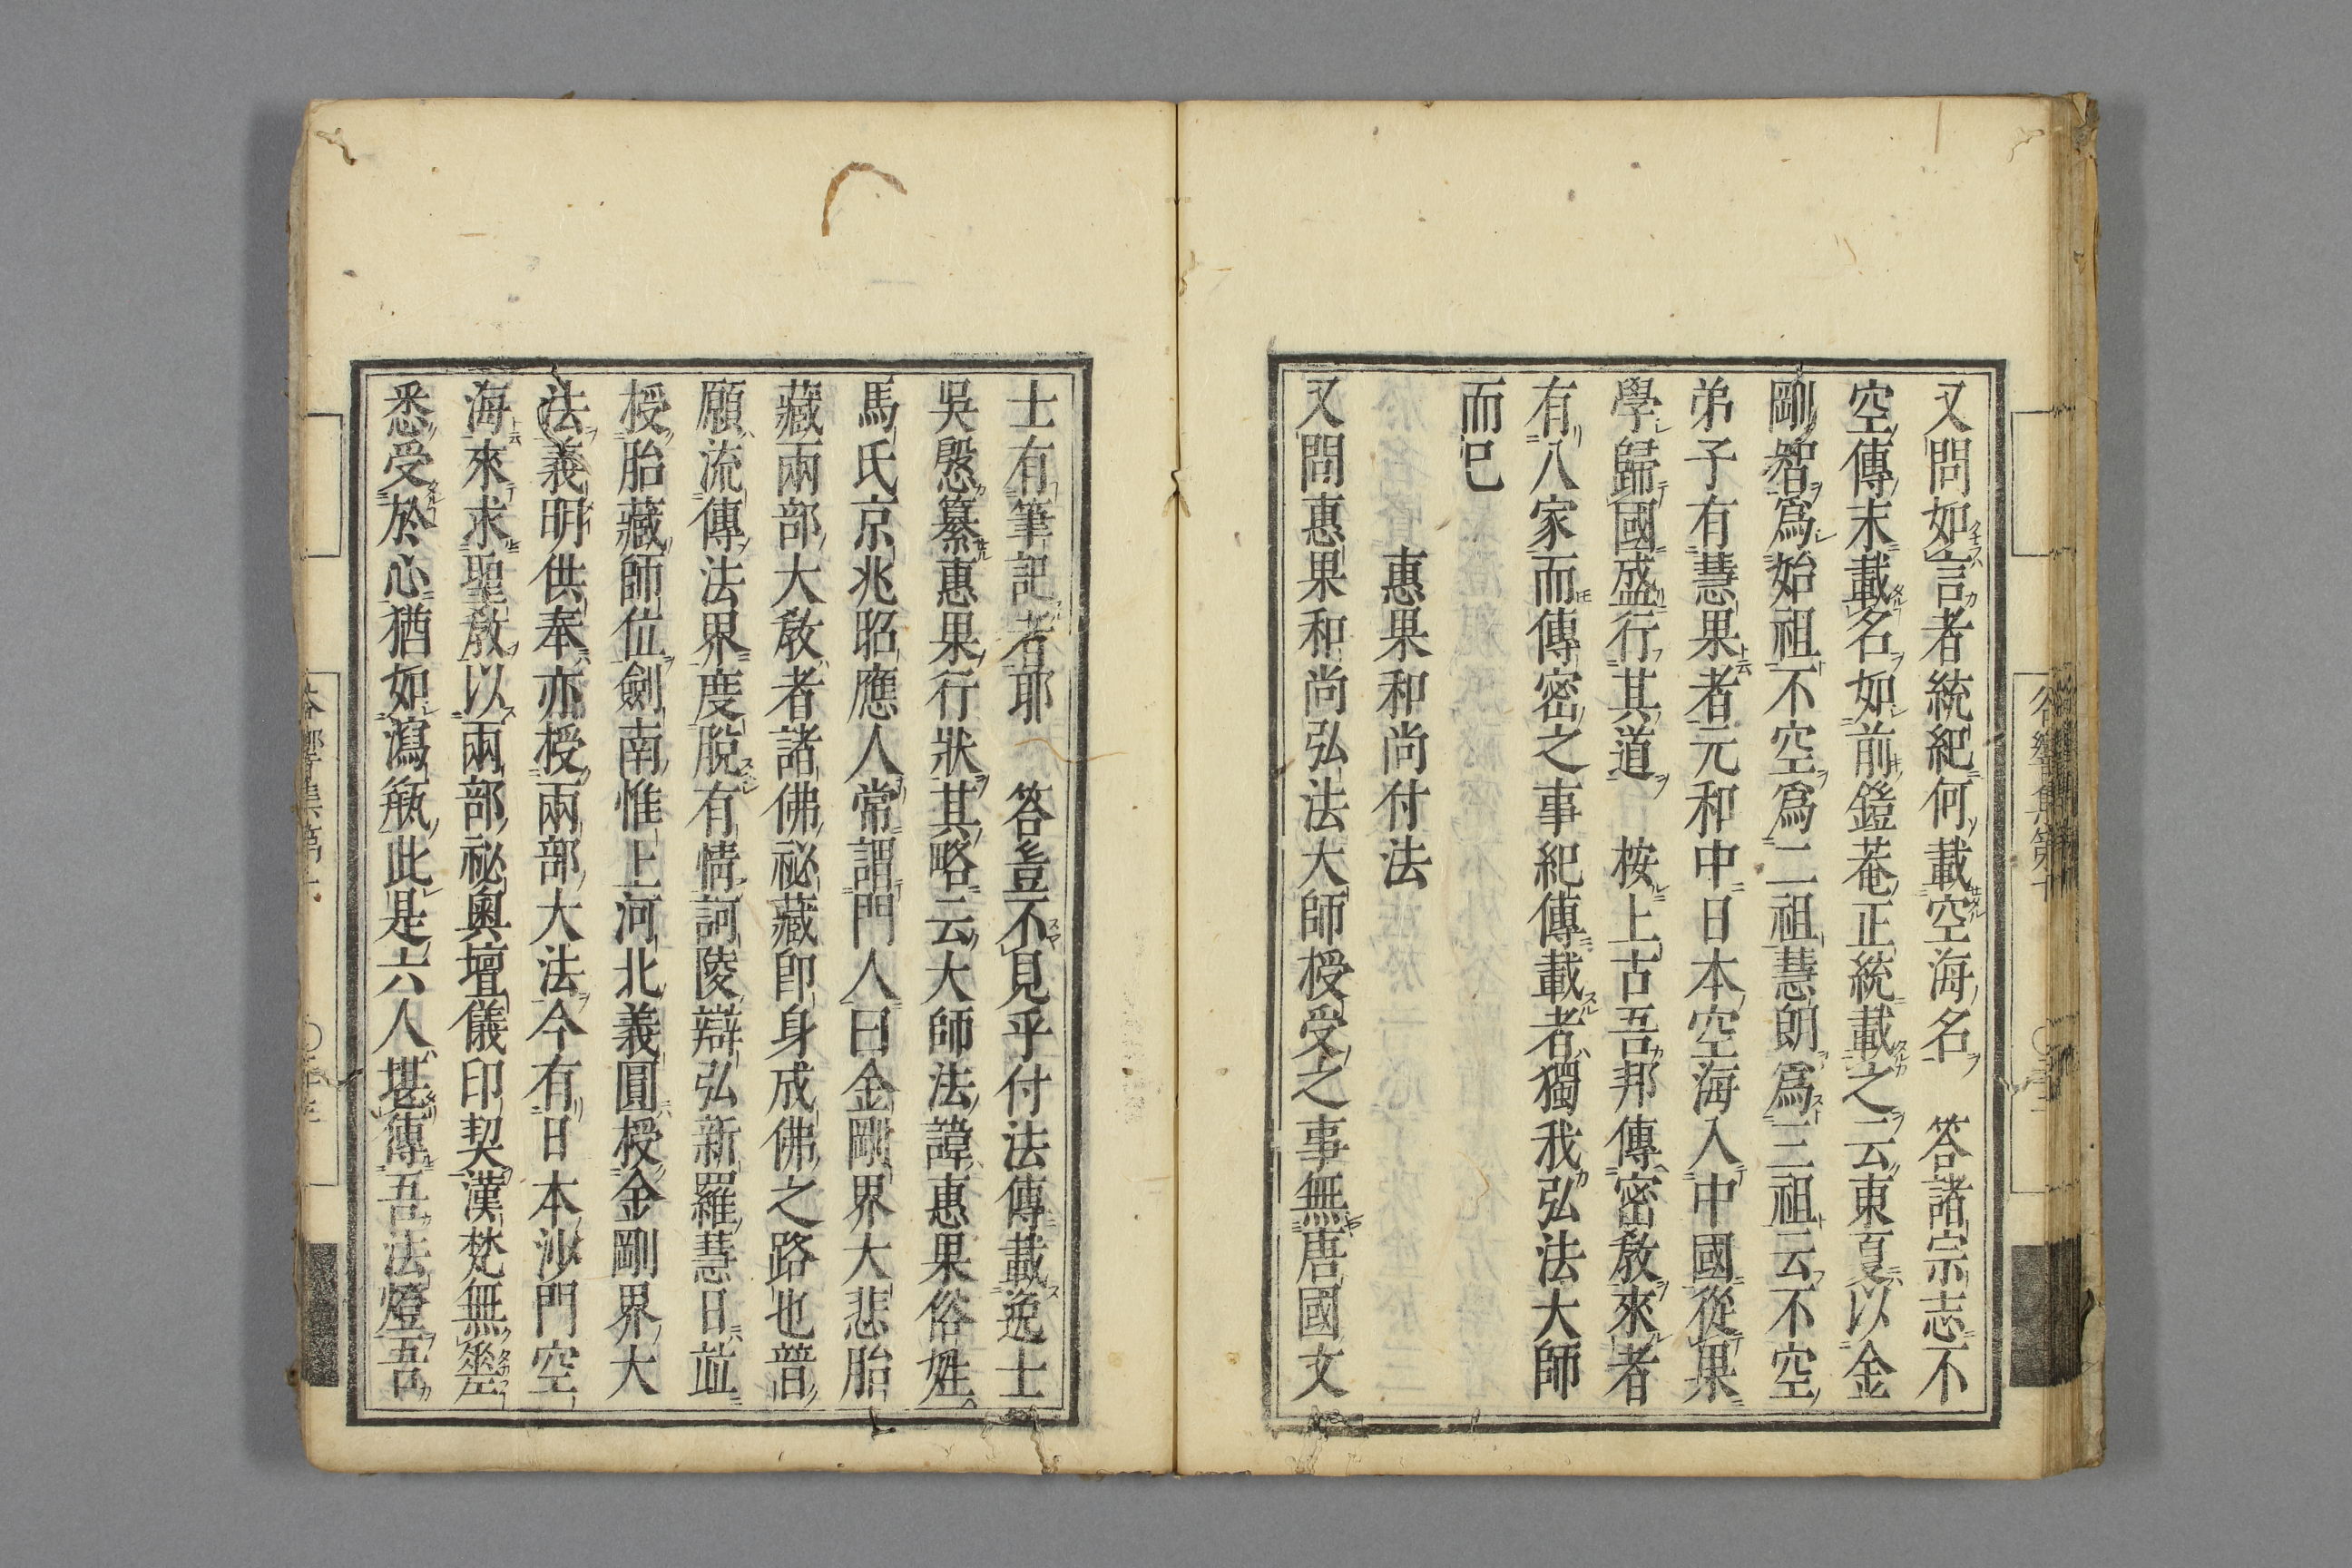 又問如言者統紀何載空海名　答諸宗志不
空傳末載名如前鐙菴正統載之云東夏以金
剛智爲始祖不空爲二祖慧朗爲三祖云不空
弟子有慧果者元和中日本空海入中國從果
學歸國盛行其道　按上古吾邦傳密教來者
有八家而傳密之事紀傳載者獨我弘法大師
而已
惠果和尚付法
又問惠果和尚弘法大師授受之事無唐國文
士有筆記者耶　答豈不見乎付法傳載逸士
吳慇纂惠果行狀其略云大師法諱惠果俗姓
馬氏京兆昭應人常謂門人曰金剛界大悲胎
藏兩部大教者諸佛祕藏卽身成佛之路也普
願流傳法界度脫有情訶陵辯弘新羅慧日並
授胎藏師位劍南惟上河北義圓授金剛界大
法義明供奉亦授兩部大法今有日本沙門空
海來求聖教以兩部祕奧壇儀印契漢梵無差
悉受於心猶如瀉瓶此是六人堪傳吾法燈吾